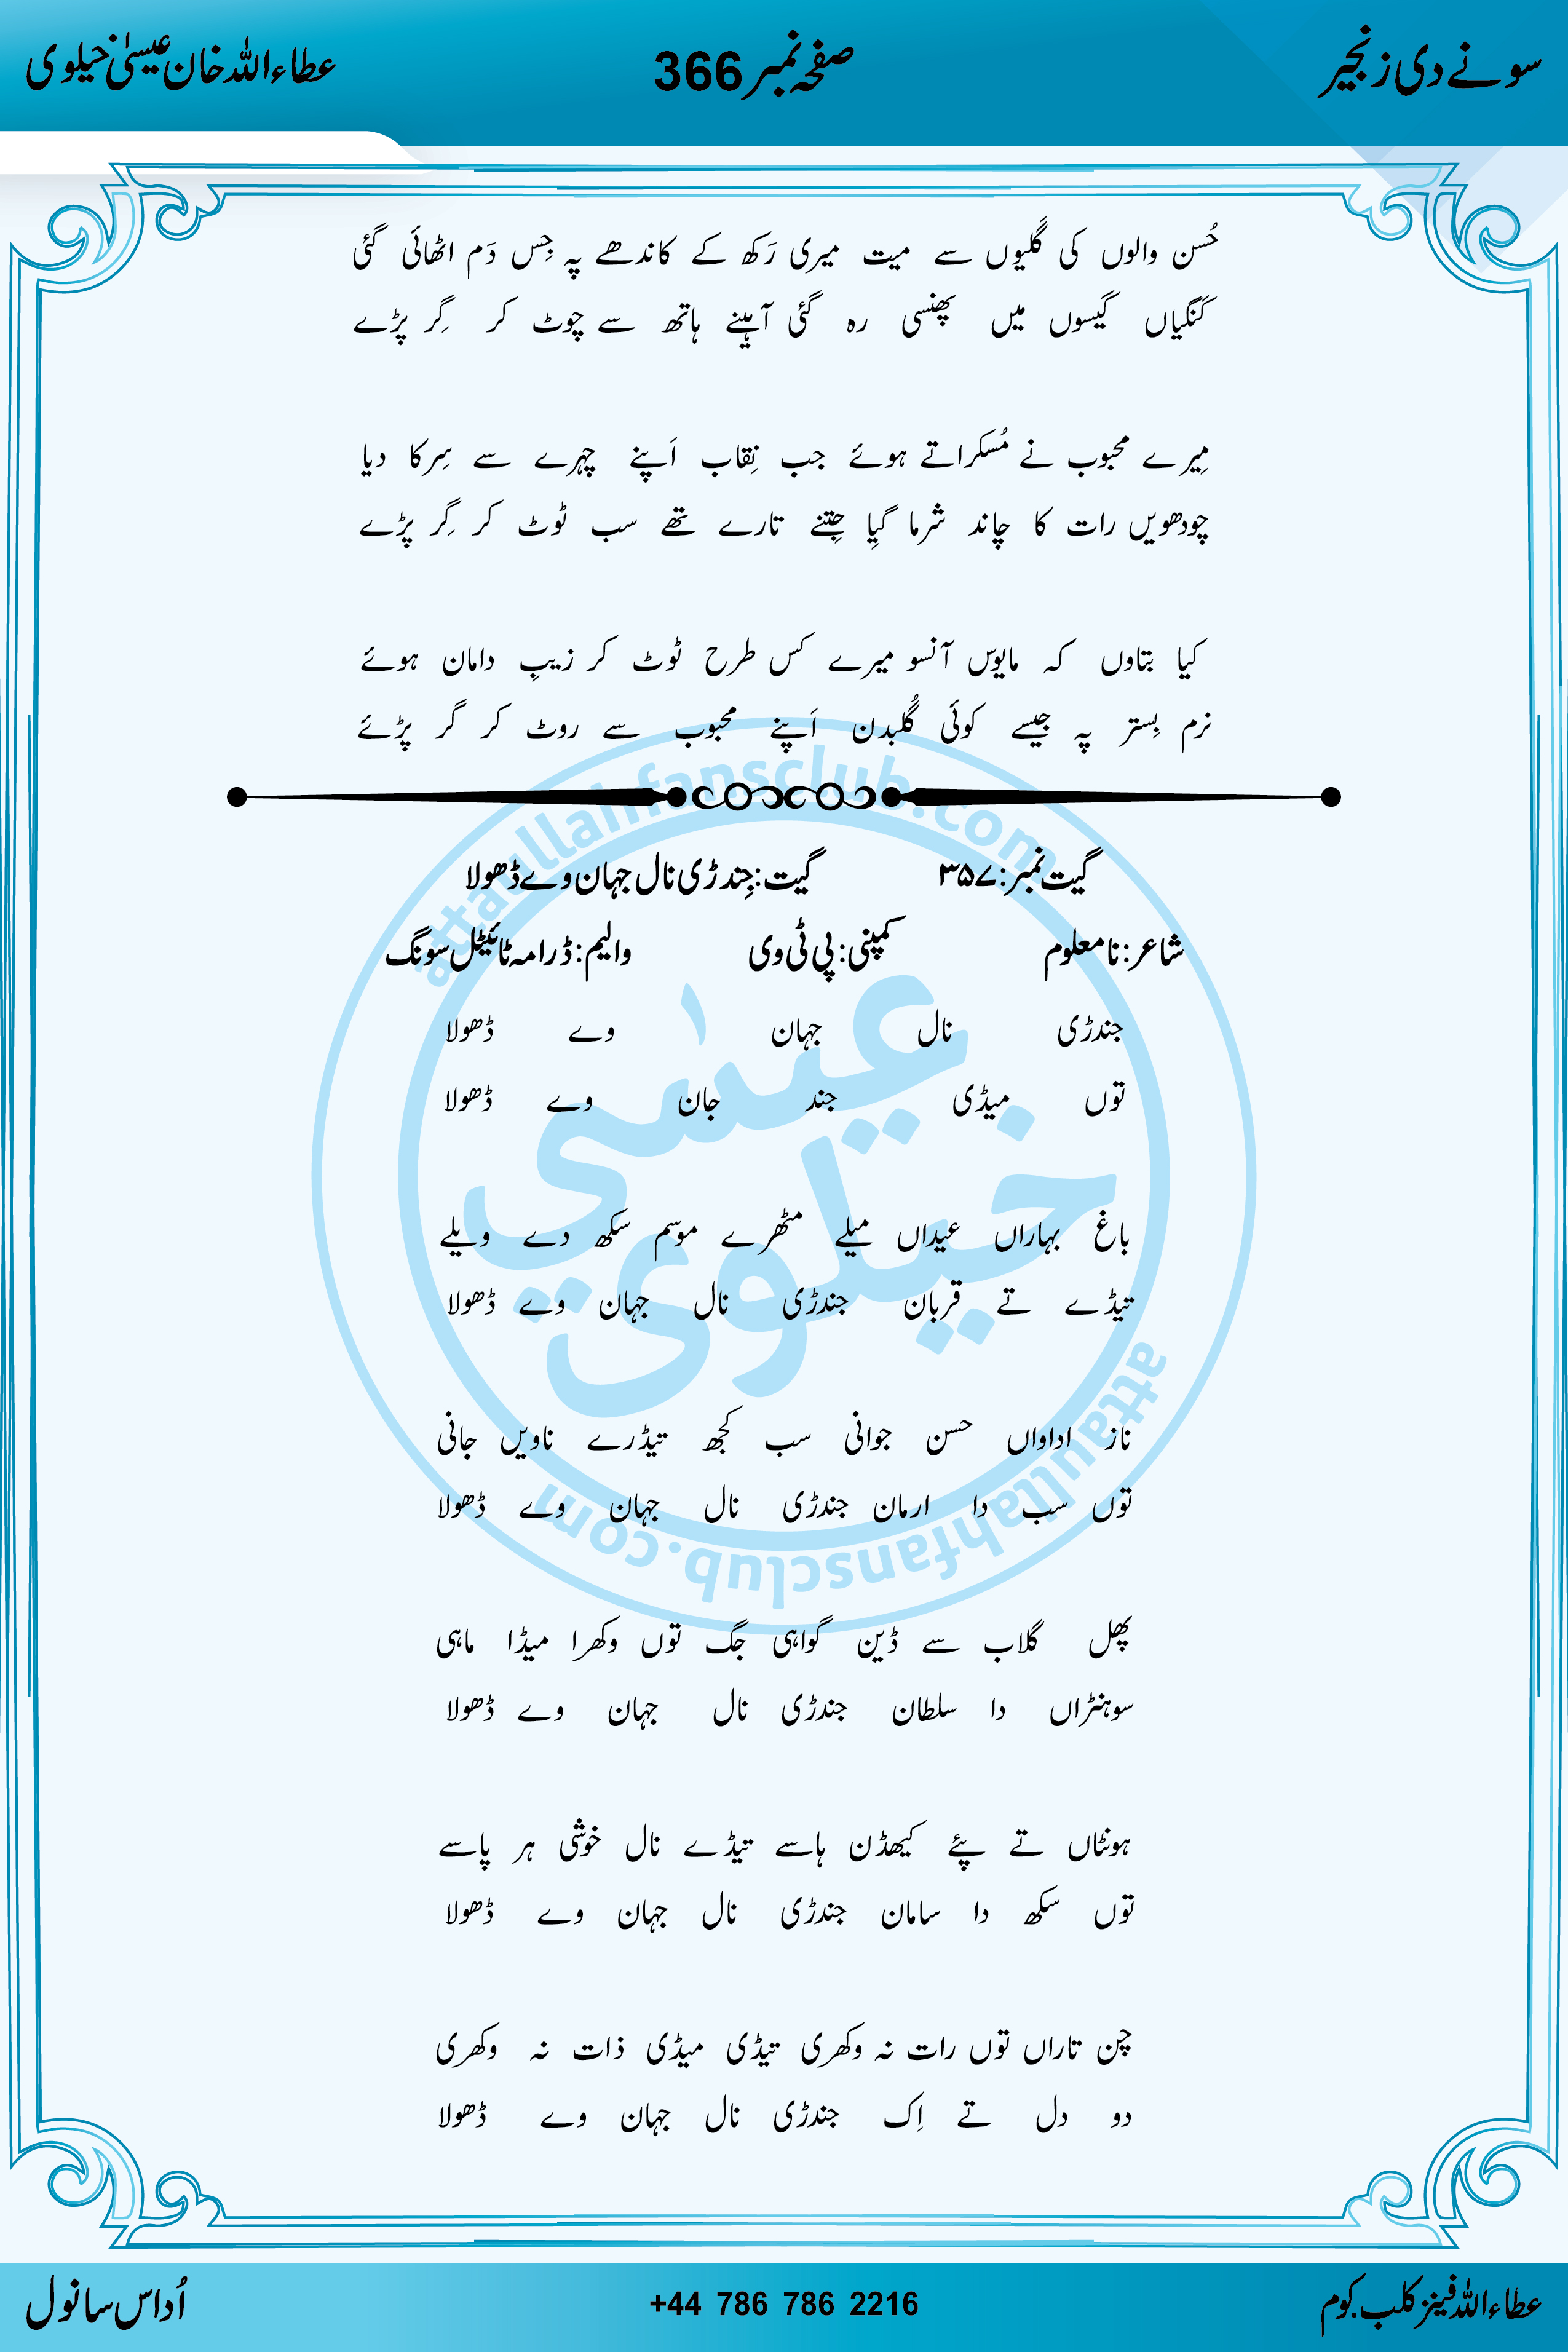 سونے دی زنجیر صفحہ نمبر 366 عطاءاللہ خان عیسیٰ خیلوی
حُسن والوں کی گلیوں سے میت میری رَکھ کے کاندھے پہ جِس دَم اٹھائی گئی
کَنگیاں گیسوں میں پھنسی رہ گئی آہینے ہاتھ سے چوٹ کر گِر پڑے
مِیرے محبوب نے مُسکراتے ہوئے جب نِقاب اَپنے چہرے سے سِرکا دیا
چودھویں رات کا چاند شرما گیِا جِتنے تارے تھے سب ٹوٹ کر گِر پڑے
کیا بتاوں کہ مایوس آنسو میرے کس طرح ٹوٹ کر زیبِ دامان ہوئے
نرم بِستر پہ جیسے کوئی گُلبدن اَپنے محبوب سے روٹ کر گر پڑئے
گیت نمبر: ۳۵۷ گیت: جِندڑی نال جہان وے ڈھولا
شاعر: نامعلوم کمپنی: پی ٹی وی والیم: ڈرامہ ٹائیٹل سونگ
جندڑی نال جہان وے ڈھولا
توں میڈی جند جان وے ڈھولا
باغ بہاراں عیداں میلے مٹھرے موسم سکھ دے ویلے
تیڈے تے قربان جندڑی نال جہان وے ڈھولا
ناز اداواں حسن جوانی سب کجھ تیڈرے ناویں جانی
توں سب دا ارمان جندڑی نال جہان وے ڈھولا
پھل گلاب سے ڈین گواہی جگ توں وکھرا میڈا ماہی
سوہنڑاں دا سلطان جندڑی نال جہان وے ڈھولا
ہونٹاں تے پئے کیھڈن ہاسے تیڈے نال خوشی ہر پاسے
توں سکھ دا سامان جندڑی نال جہان وے ڈھولا
چن تاراں توں رات نہ وکھری تیڈی میڈی ذات نہ وکھری
دو دل تے اِک جندڑی نال جہان وے ڈھولا
عطاءاللہ فینز کلب۔کوم +44 786 786 2216 اُداس سانول
attaullahfansclub.com
عیسٰی
خیلوی
attaullahfansclub.com